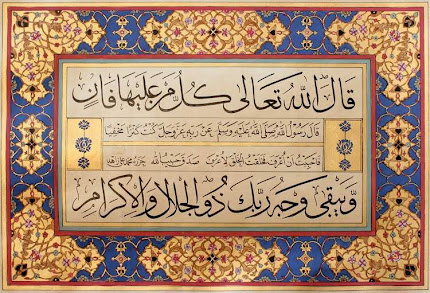 قال الله تعالى كل من عليها فان
قال رسول الله صلى الله عليه وسلم عن ربه عز وجل كنت كنزا مخفيا
فاحببت ان اعرف فخلقت الخلق لاعرف صدق حبيب الله
ويبقى وجه ربك ذو الجلال والاكرام